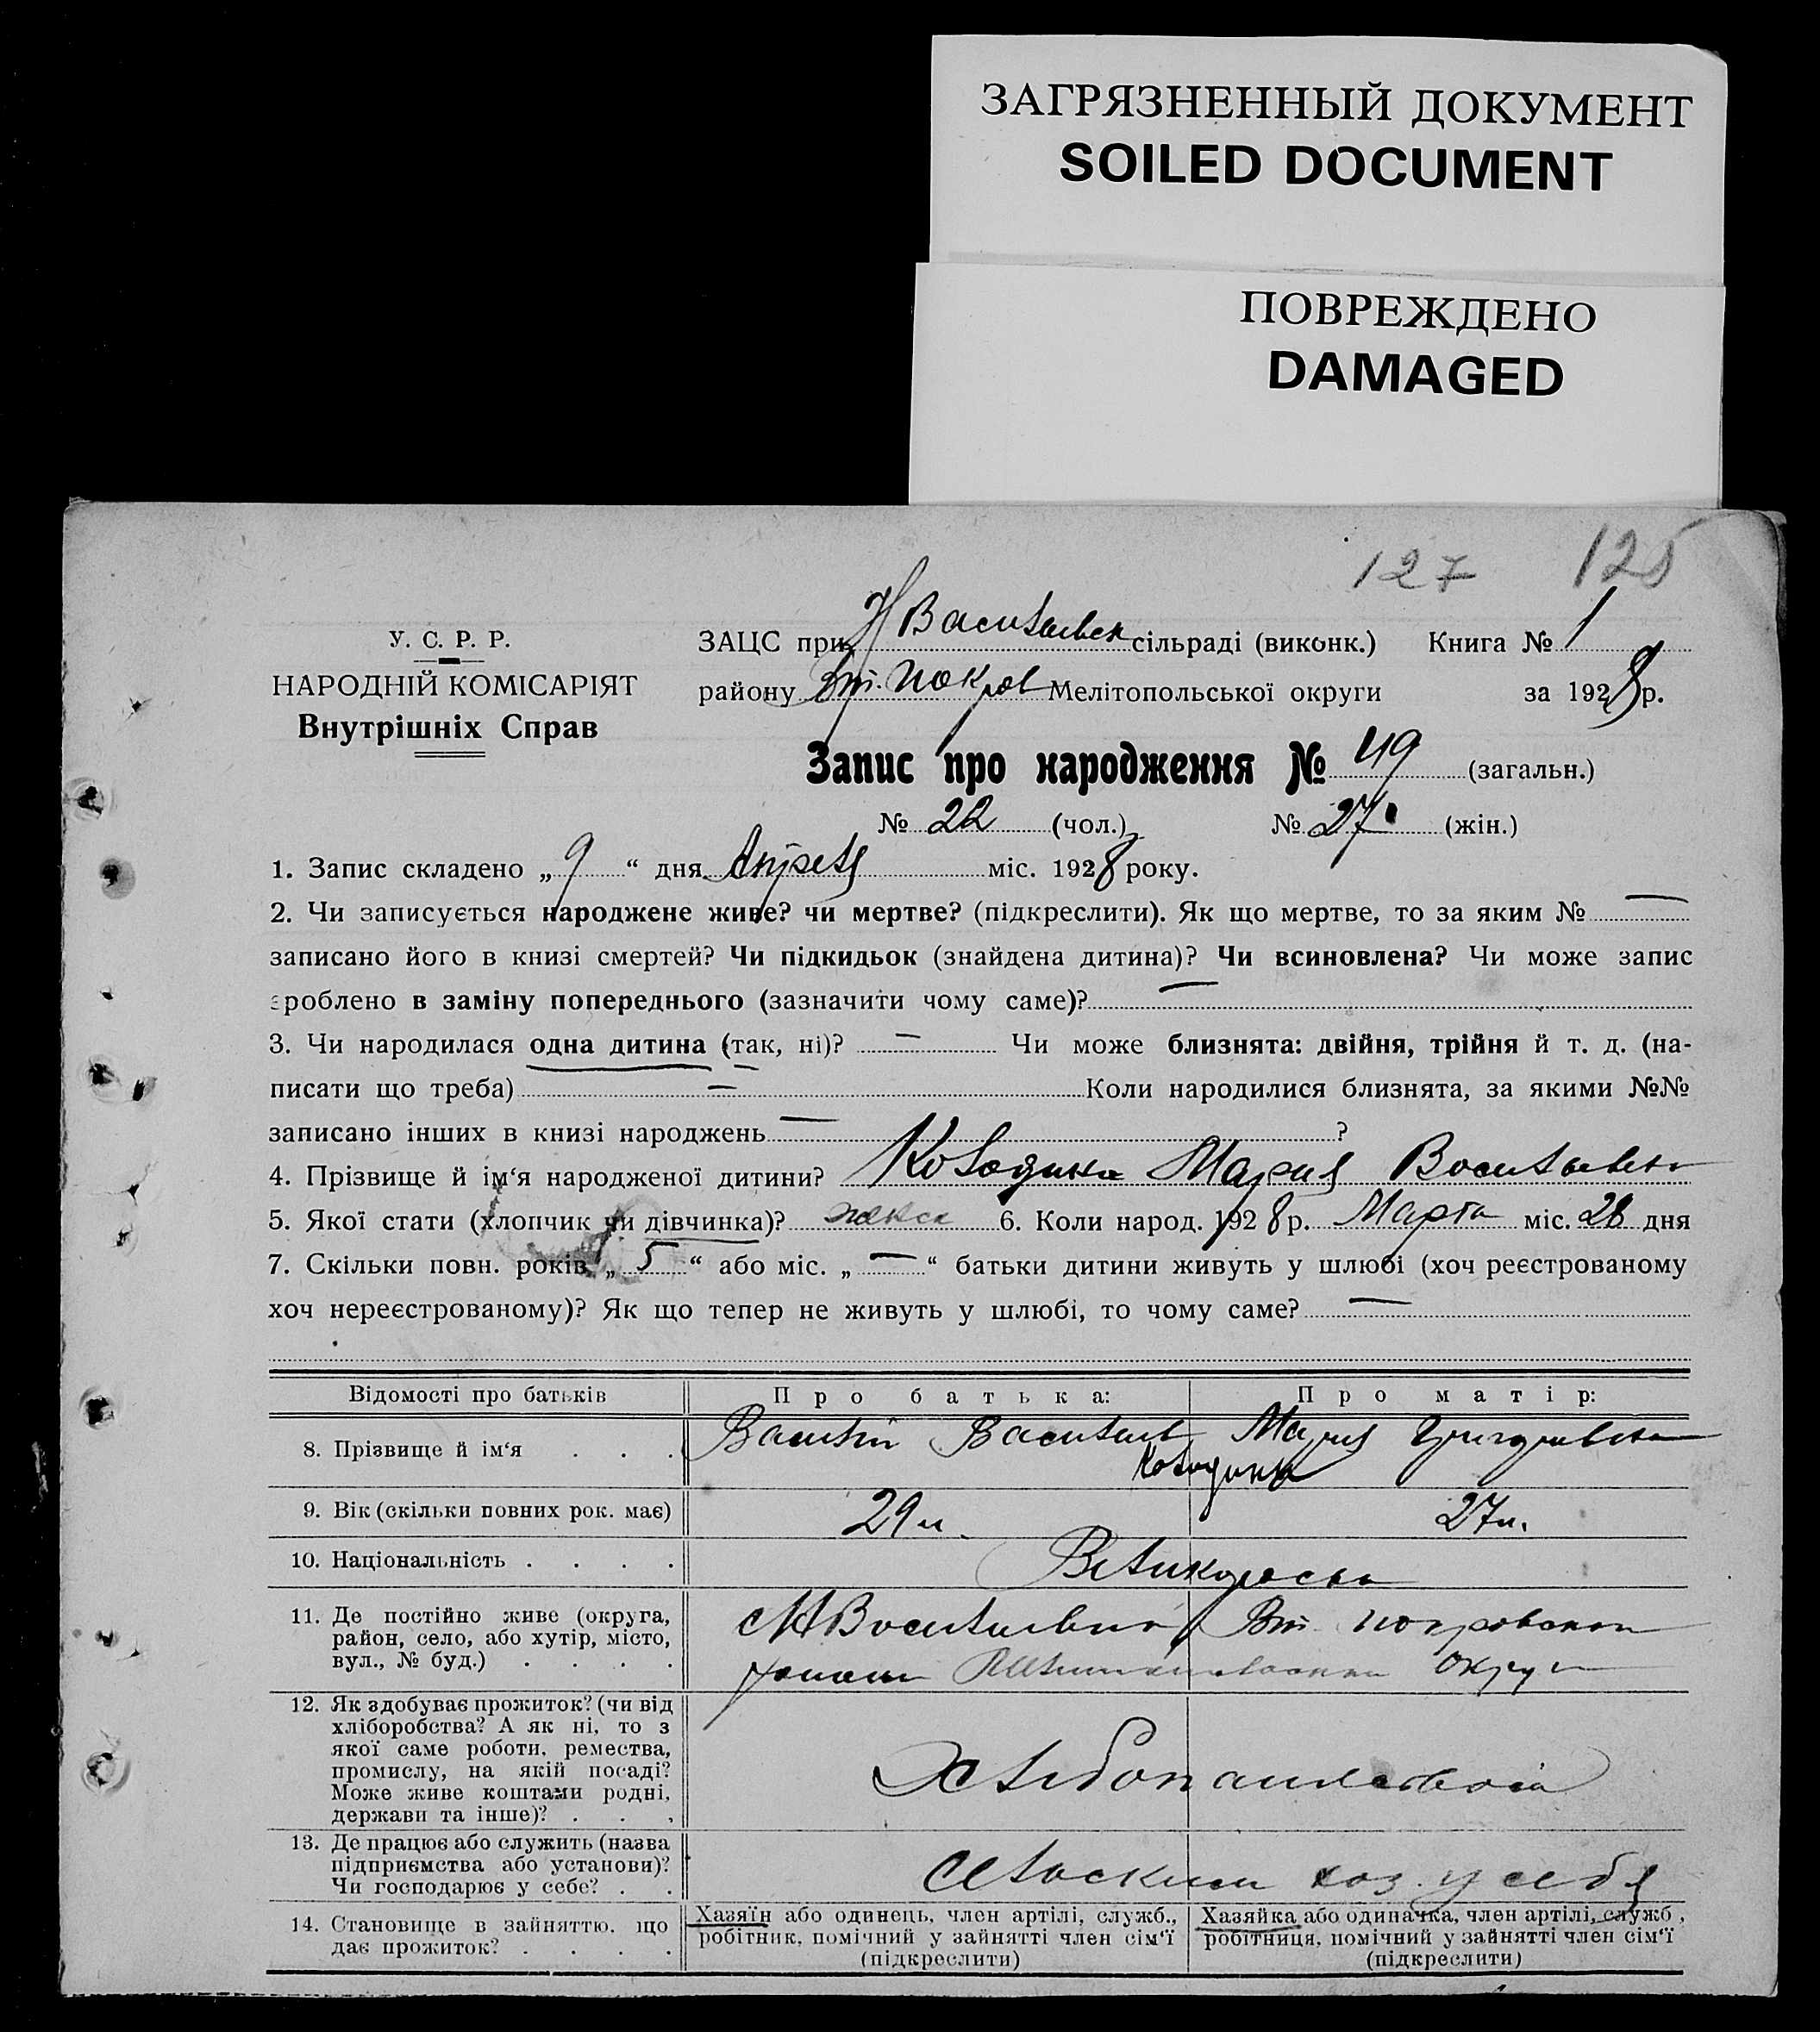 ЗАГРЯЗНЕННЫЙ ДОКУМЕНТ
SOILED DOCUMENT
ПОВРЕЖДЕНО
DAMAGED
127 125
У. С. Р. Р.
НАРОДНІЙ КОМІСАРІЯТ
Внутрішніх Справ
ЗАЦС при Н Васильевск сільраді (виконк.) Книга № 1
району Вт. Покров Мелітопольської округи за 1928 р.
Запис про народження № 49 (загальн.)
№ 22 (чол.) № 27 (жін.)
1. Запис складено „ 9 “ дня Апреля міс. 1928 року.
2. Чи записується народжене живе? чи мертве? (підкреслити). Як що мертве, то за яким № —
записано його в книзі смертей? Чи підкидьок (знайдена дитина)? Чи всиновлена? Чи може запис
зроблено в заміну попереднього (зазначити чому саме)? —
3. Чи народилася одна дитина (так, ні)? — Чи може близнята: двійня, трійня й т. д. (на-
писати що треба) — Коли народилися близнята, за якими №№
записано інших в книзі народжень — ?
4. Прізвище й ім‘я народженої дитини? Мария Васильевна
5. Якої стати (хлопчик чи дівчинка)? женск 6. Коли народ. 1928 р. Марта міс. 28 дня
7. Скільки повн. років „ 5 “ або міс. „ — “ батьки дитини живуть у шлюбі (хоч реєстрованому
хоч нереєстрованому)? Як що тепер не живуть у шлюбі, то чому саме? —
Відомості про батьків Про батька: Про матір:
8. Прізвище й ім‘я . . . Василий Васильев Мария Григорьевна
9. Вік (скільки повних рок. має) 29 л. 27 л.
10. Національність . . . . Великоросы
11. Де постійно живе (округа,
район, село, або хутір, місто,
вул., № буд.) . . . .
Вт. Покровского
района Мелитопольского округа
12. Як здобуває прожиток? (чи від
хліборобства? А як ні, то з
якої саме роботи, ремества,
промислу, на якій посаді?
Може живе коштами родні,
держави та інше)? . . .
Хлебопашеством
13. Де працює або служить (назва
підприємства або установи)?
Чи господарює у себе? . .
Сельским хоз. у себя
14. Становище в зайняттю, що
дає прожиток? . . . .
Хазяїн або одинець, член артілі, служб.,
робітник, помічний у зайнятті член сім‘ї
(підкреслити)
Хазяйка або одиначка, член артілі, служб.,
робітниця, помічний у зайнятті член сім‘ї
(підкреслити)